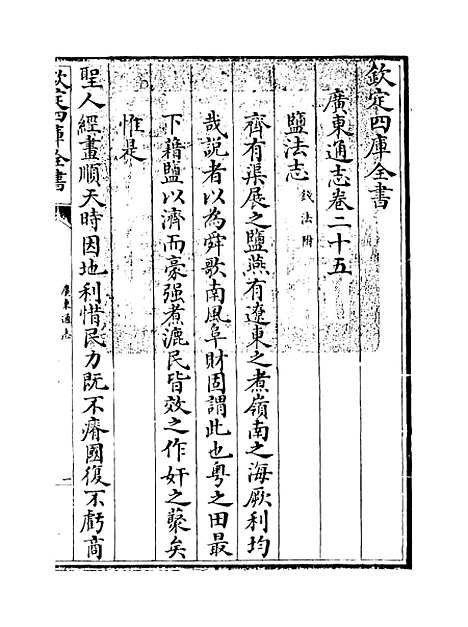 欽定四庫全書
廣東通志卷二十五
鹽法志 錢法附
齊有渠展之鹽燕有遼東之煮嶺南之海厥利均
哉説者以為舜歌南風阜財固謂此也粤之田最
下藉鹽以濟而豪强煮漉民皆效之作奸之藪矣
惟是
聖人經畫順天時因地利惜民力既不瘠國復不虧商
欽定四庫全書
廣東通志
一